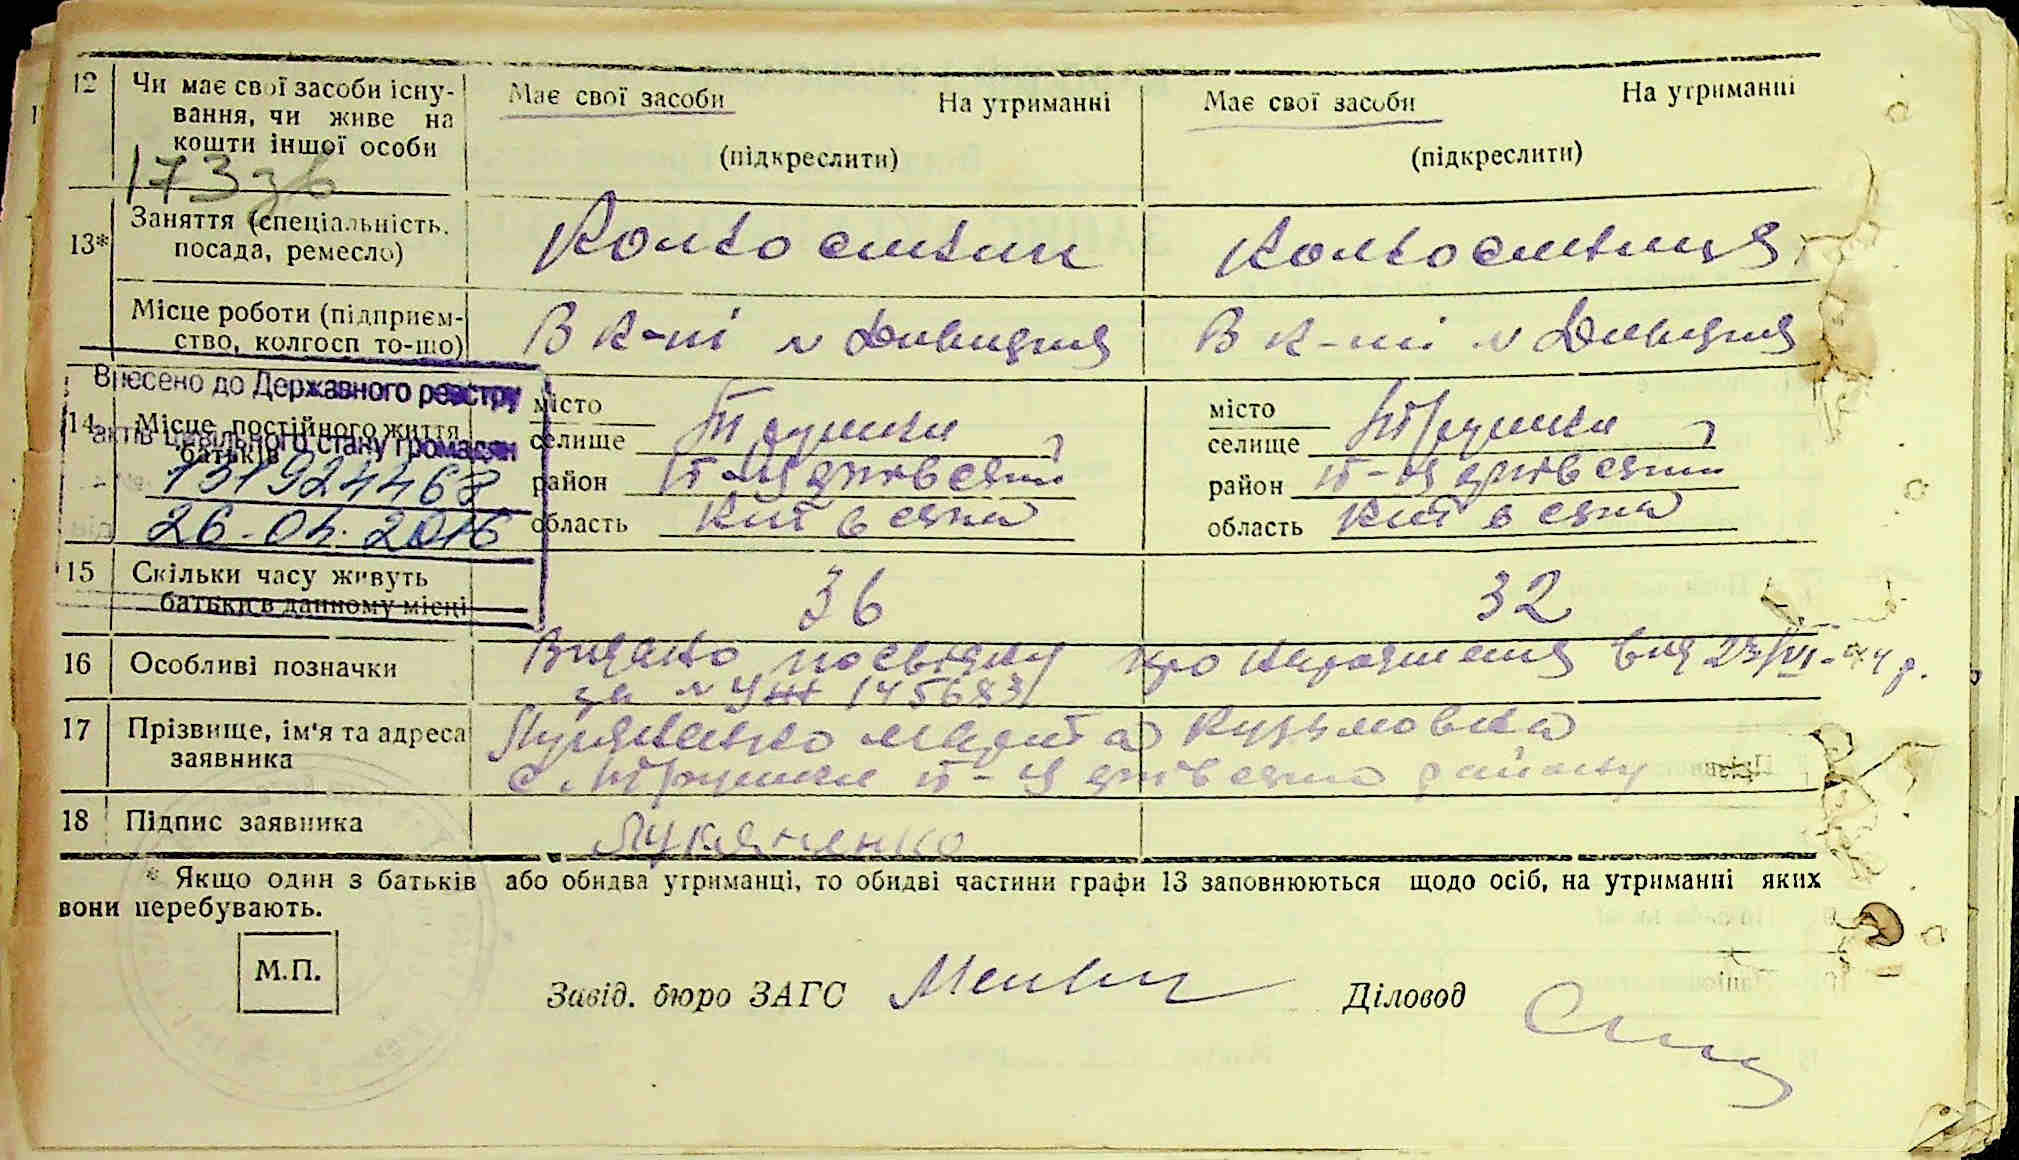 12 Чи має свої засоби існу-
вання, чи живе на
кошти іншої особи
Має свої засоби На утриманні
(підкреслити)
Має свої засоби На утриманні
(підкреслити)
173зв
13* Заняття (спеціальність,
посада, ремесло)
Колхосники
Колхосниця
Місце роботи (підприєм-
ство, колгосп то-що)
В к-пі
В к-пі
Внесено до Державного реєстру
актів цивільного стану громадян
131924468
26-04.2016
14. Місце постійного життя
батьків
місто
селище Трушки
район Б-Церківський
область Київська
місто
селище Трушки
район Б-Церківський
область Київська
15 Скільки часу живуть
батьки в данному місці
36
32
16 Особливі позначки
Видано посвідку про народження від 23/VI-44 р.
за № УЖ 145683
17 Прізвище, ім'я та адреса
заявника
Лукяненко Кузьмовна
с. Трушки Б-Церківського району
18 Підпис заявника
Лукяненко
* Якщо один з батьків або обидва утриманці, то обидві частини графи 13 заповнюються щодо осіб, на утриманні яких
вони перебувають.
М.П.
Завід. бюро ЗАГС
Діловод